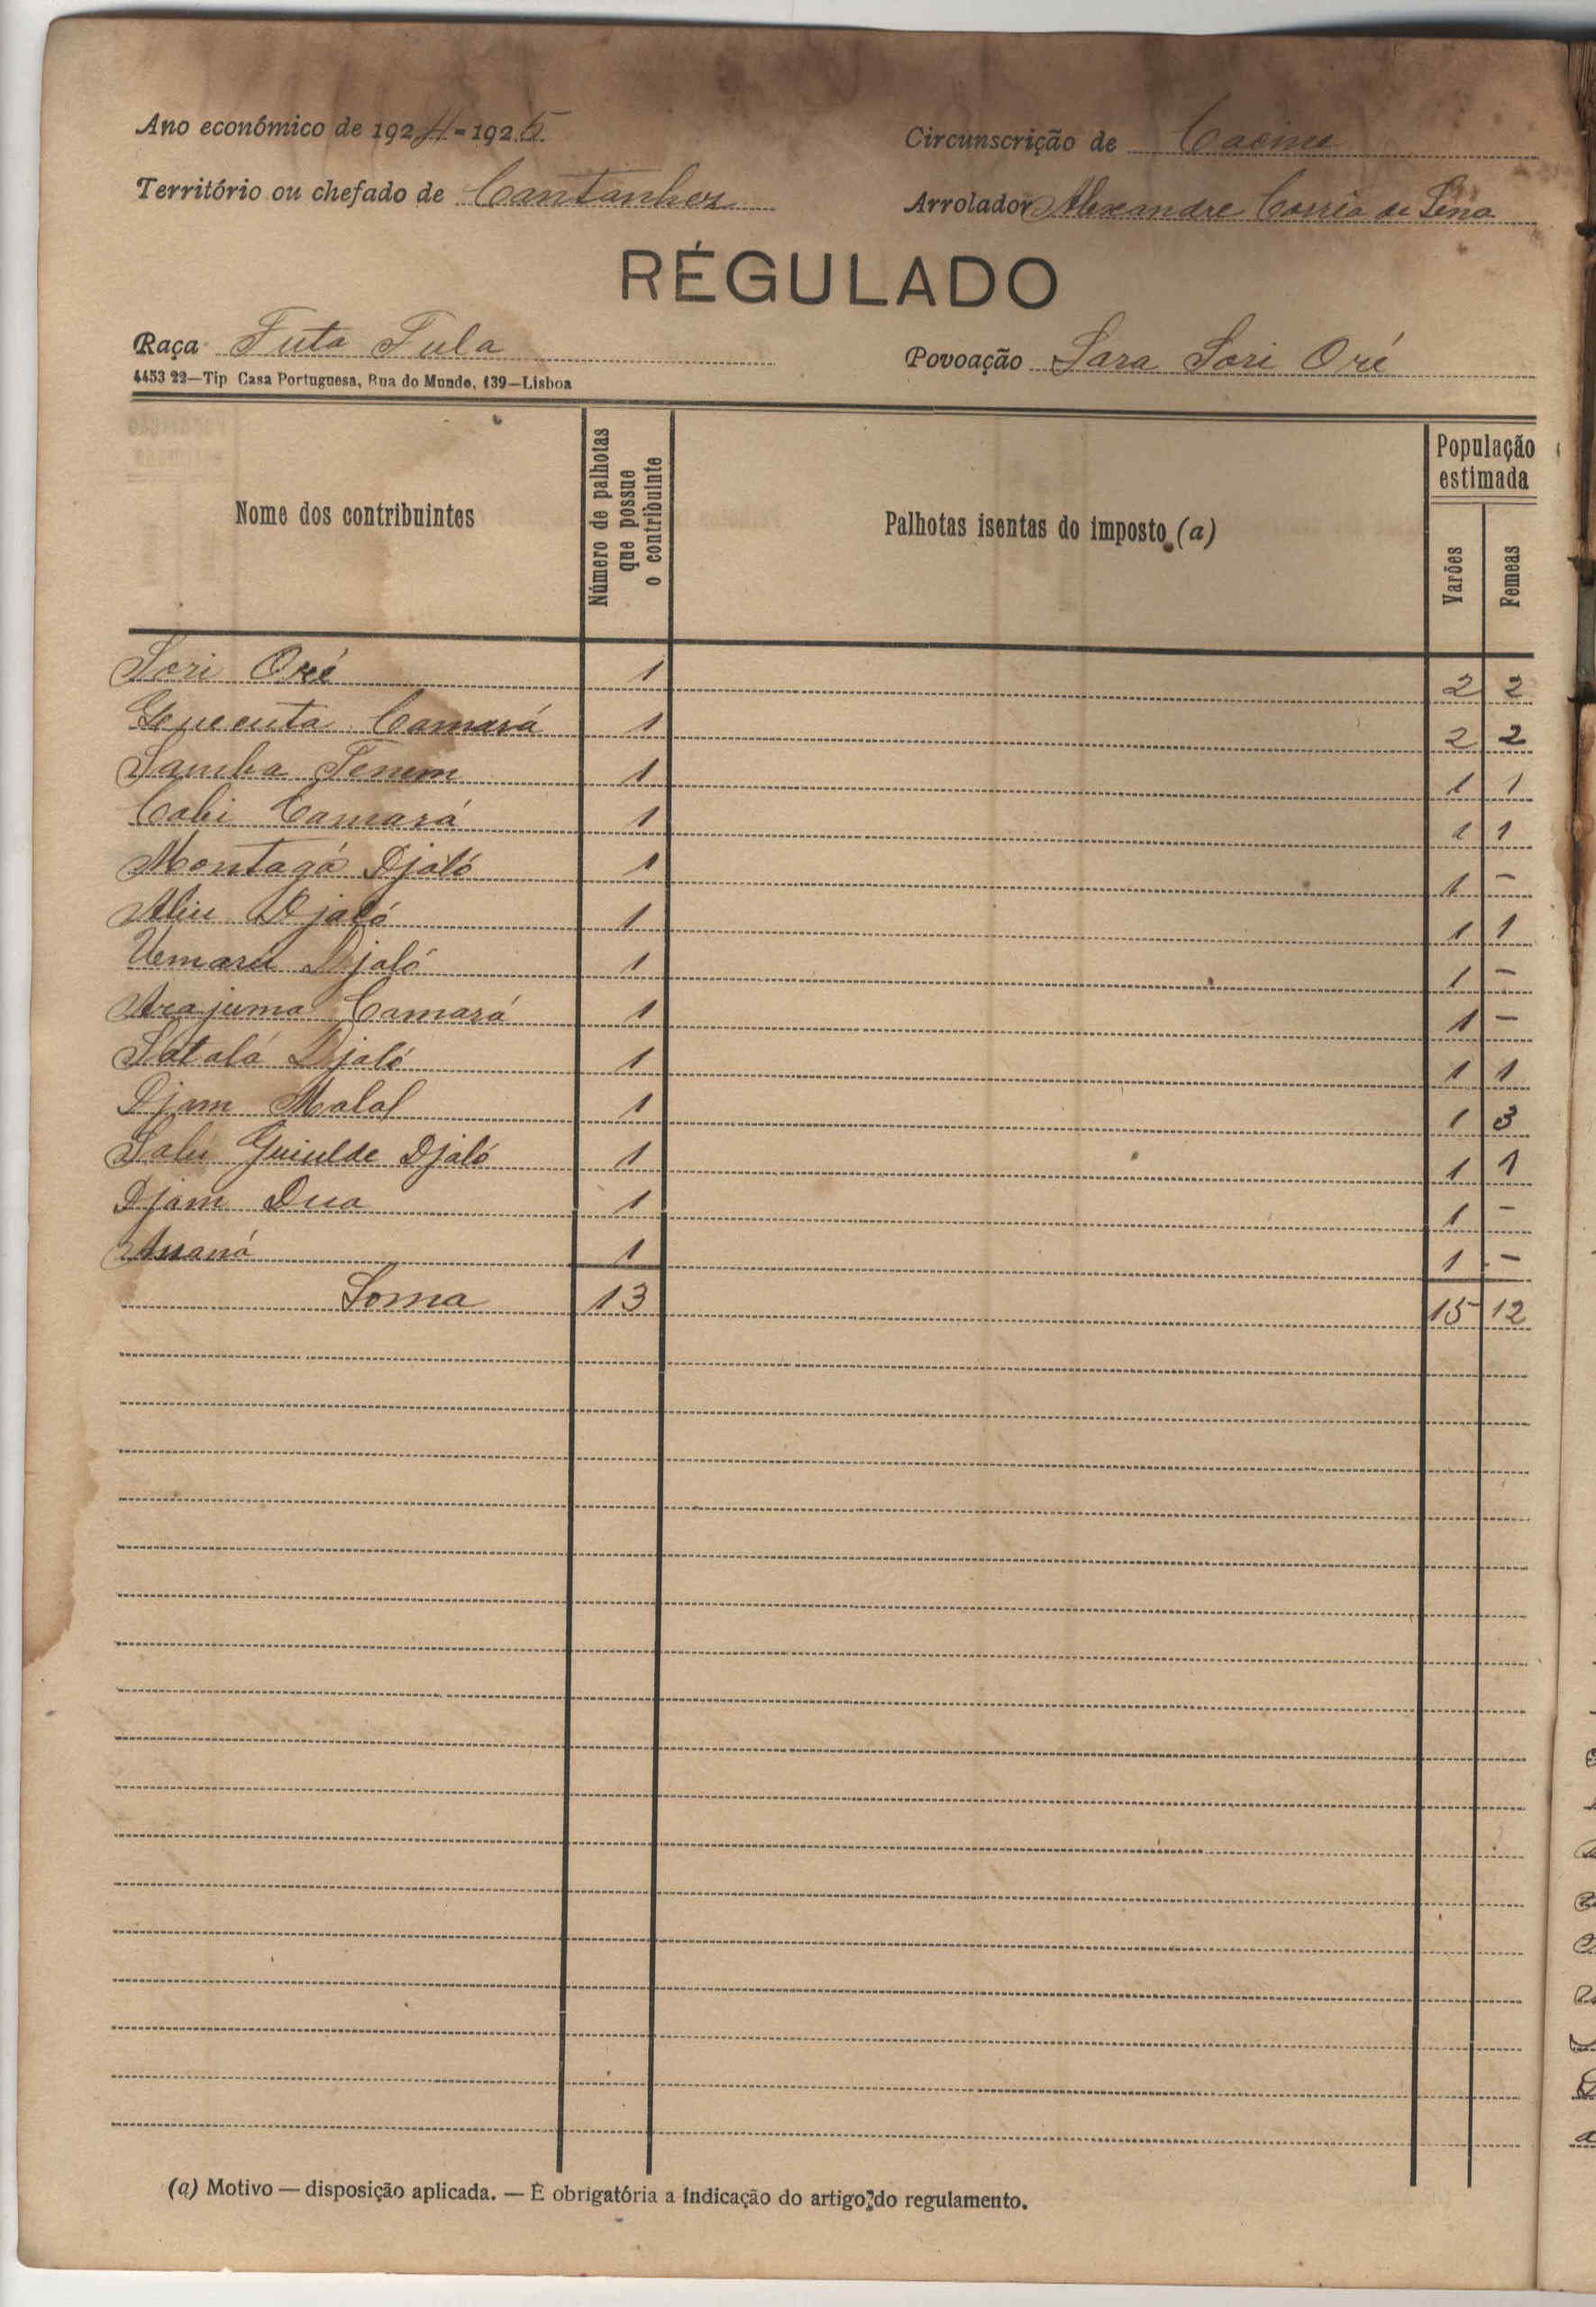 Ano económico de 1924-1925
Circunscrição de Cacine
Território ou chefado de Cantanhez
Arrolador Alexandre Corrêa de Sena
RÉGULADO
Raça Futa Fula
Povoação Sara Sori Oré
4453 22—Tip Casa Portuguesa, Rua do Mundo, 139—Lisboa
Nome dos contribuintes
Número de palhotas que possue o contribuinte
Palhotas isentas do imposto (a)
População estimada
Varões
Femeas
Sori Oré 1 2 2
Camará 1 2 2
Samba Tenem 1 1 1
Cabi Camará 1 1 1
Montagá Djaló 1 1 -
Aliu Djaló 1 1 1
Uemaru Djaló 1 1 -
Arajuma Camará 1 1 -
Satalá Djaló 1 1 1
Djam Malal 1 1 3
Salu Guiulde Djaló 1 1 1
Djam Dua 1 1 -
1 1 -
Soma 13 15 12
(a) Motivo — disposição aplicada. — É obrigatória a indicação do artigo do regulamento.